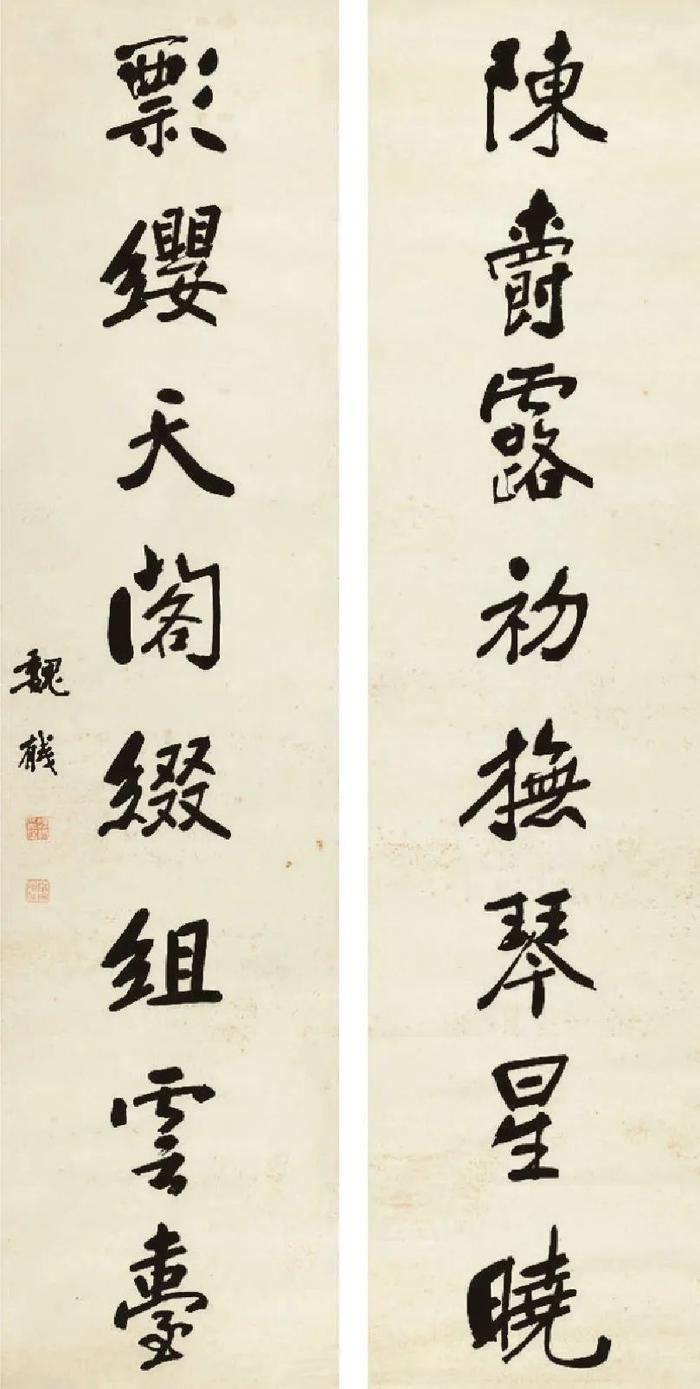 陳爵露初撫琴星曉
彯纓天閣綴組雲臺
魏戫